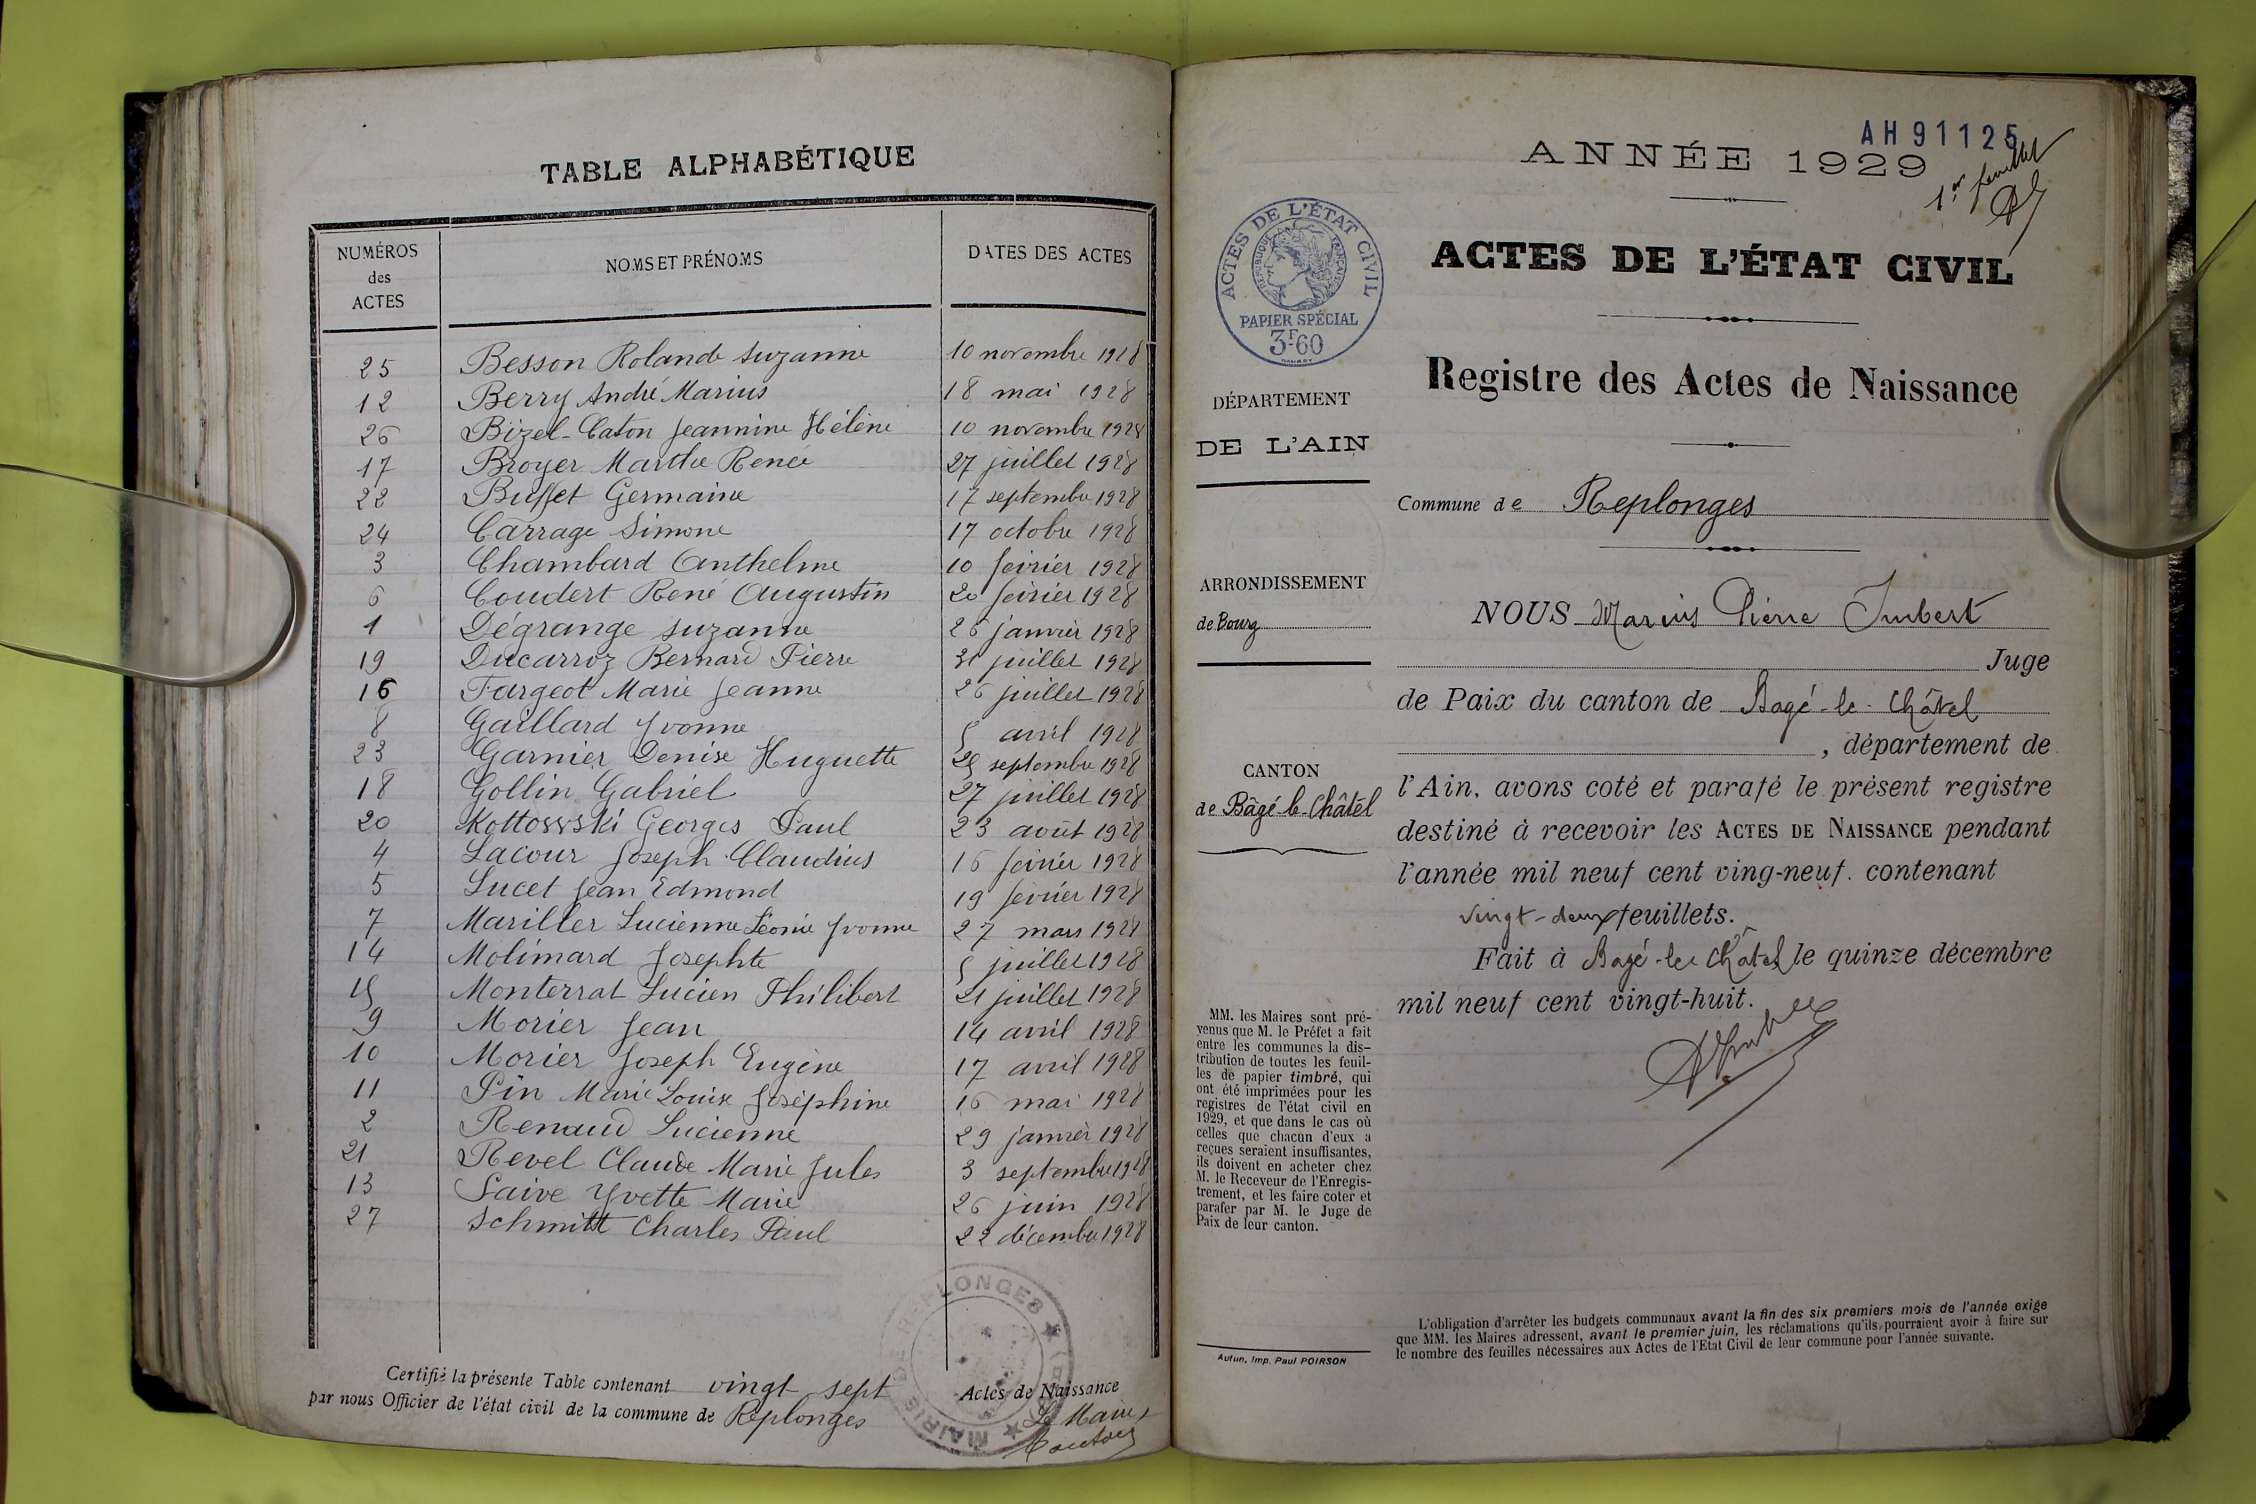 TABLE ALPHABÉTIQUE
NUMÉROS des ACTES NOMS ET PRÉNOMS DATES DES ACTES
25 Besson Rolande Suzanne 10 novembre 1928
12 Berry André Marius 18 mai 1928
26 Bizel-Caton Jeannine Hélène 10 novembre 1928
17 Broyer Marthe Renée 27 juillet 1928
22 Buffet Germaine 17 septembre 1928
24 Carrage Simone 17 octobre 1928
3 Chambard Anthelme 10 février 1928
6 Coudert René Augustin 20 février 1928
1 Dégrange Suzanne 26 janvier 1928
19 Ducarroz Bernard Pierre 31 juillet 1928
16 Fargeot Marie Jeanne 26 juillet 1928
8 Gaillard Yvonne 5 avril 1928
23 Garnier Denise Huguette 25 septembre 1928
18 Gollin Gabriel 27 juillet 1928
20 Kottowski Georges Paul 23 août 1928
4 Lacour Joseph Claudius 16 février 1928
5 Lucet Jean Edmond 19 février 1928
7 Mariller Lucienne Léonie Yvonne 27 mars 1928
14 Molimard Josephte 5 juillet 1928
15 Monterrat Lucien Philibert 21 juillet 1928
9 Morier Jean 14 avril 1928
10 Morier Joseph Eugène 17 avril 1928
11 Pin Marie Louise Joséphine 16 mai 1928
2 Renaud Lucienne 29 janvier 1928
21 Revel Claude Marie Jules 3 septembre 1928
13 Saive Yvette Marie 26 juin 1928
27 Schmitt Charles Paul 22 décembre 1928
Certifié la présente Table contenant vingt sept Actes de Naissance
par nous Officier de l'état civil de la commune de Replonges
Le Maire
MAIRIE DE REPLONGES
AH 91125
ANNÉE 1929
1er feuillet
ACTES DE L'ÉTAT CIVIL
ACTES DE L'ÉTAT CIVIL
RÉPUBLIQUE FRANÇAISE
PAPIER SPÉCIAL
3F60
Registre des Actes de Naissance
DÉPARTEMENT
DE L'AIN
Commune de Replonges
ARRONDISSEMENT
de Bourg
NOUS Marius Pierre Imbert
Juge
de Paix du canton de Bagé-le-Châtel
, département de
CANTON
de Bâgé-le-Châtel
l'Ain, avons coté et parafé le présent registre
destiné à recevoir les ACTES DE NAISSANCE pendant
l'année mil neuf cent ving-neuf. contenant
vingt-deux feuillets.
Fait à Bagé-le-Châtel le quinze décembre
mil neuf cent vingt-huit.
MM. les Maires sont pré-
venus que M. le Préfet a fait
entre les communes la dis-
tribution de toutes les feuil-
les de papier timbré, qui
ont été imprimées pour les
registres de l'état civil en
1929, et que dans le cas où
celles que chacun d'eux a
reçues seraient insuffisantes,
ils doivent en acheter chez
M. le Receveur de l'Enregis-
trement, et les faire coter et
parafer par M. le Juge de
Paix de leur canton.
Autun, Imp. Paul POIRSON
L'obligation d'arrêter les budgets communaux avant la fin des six premiers mois de l'année exige
que MM. les Maires adressent, avant le premier juin, les réclamations qu'ils pourraient avoir à faire sur
le nombre des feuilles nécessaires aux Actes de l'Etat Civil de leur commune pour l'année suivante.